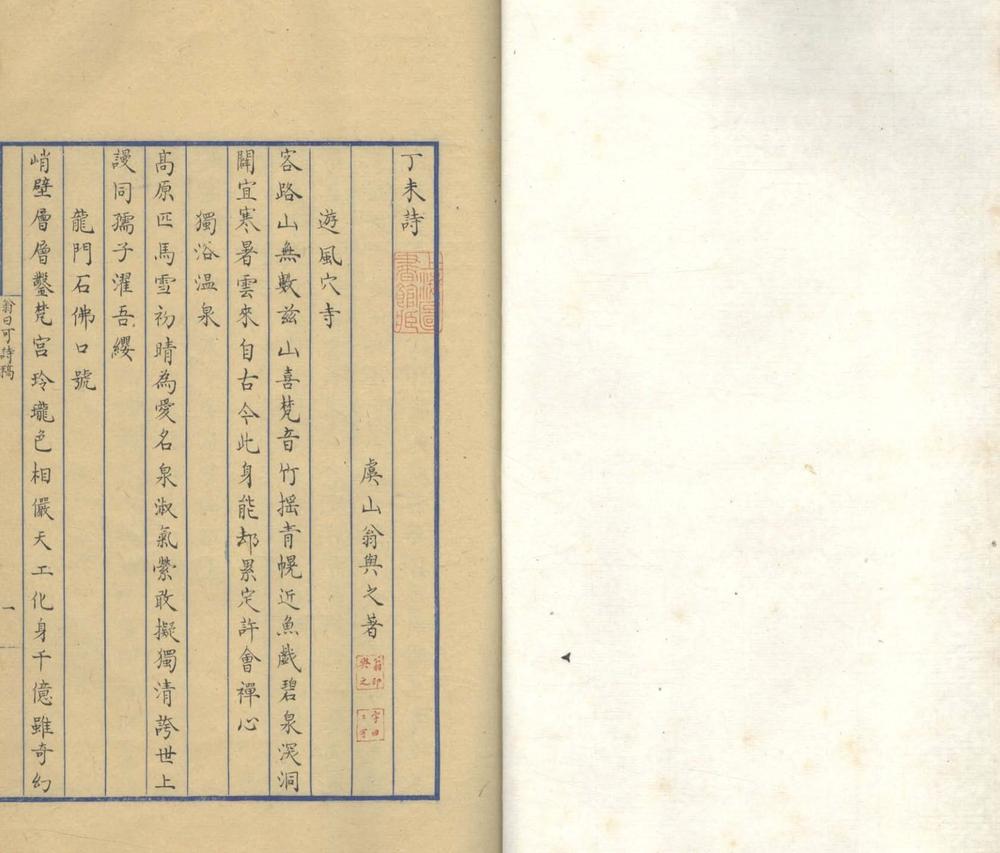 丁未詩
虞山翁與之著
翁印與之
字曰
遊風穴寺
客路山無數兹山喜梵音竹摇青幌近魚戲碧泉深洞
闢宜寒暑雲來自古今此身能却累定許會禪心
獨浴温泉
高原匹馬雪初晴為愛名泉淑氣縈敢擬獨清誇世上
謾同孺子濯吾纓
龍門石佛口號
峭壁層層鑿梵宫玲瓏色相儼天工化身千億雖奇幻
翁曰可詩稿
一